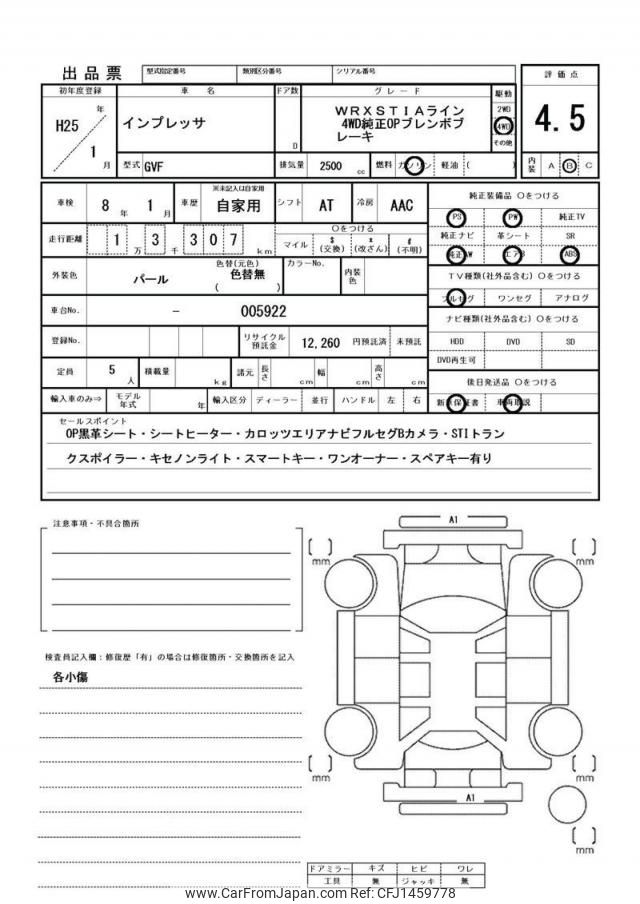 出品票
型式指定番号 類別区分番号 シリアル番号
評価点
4.5
初年度登録 車名 ドア数 グレード 駆動
H25 年 1 月
インプレッサ
D
WRXSTIAライン
4WD純正OPブレンボブ
レーキ
2WD
4WD
その他
型式 GVF 排気量 2500 cc 燃料 ガソリン 軽油 ( ) 内装 A B C
車検 8 年 1 月 車歴 ※未記入は自家用 自家用 シフト AT 冷房 AAC
純正装備品 〇をつける
PS PW 純正TV
純正ナビ 革シート SR
純正AW エアB ABS
走行距離 1 万 3 千 307 km
〇をつける
マイル $ (交換) x (改ざん) # (不明)
外装色 パール 色替(元色) 色替無 ( ) カラーNo. 内装色
TV種類(社外品含む) 〇をつける
フルセグ ワンセグ アナログ
車台No. − 005922
ナビ種類(社外品含む) 〇をつける
HDD DVD SD
DVD再生可
登録No. リサイクル預託金 12,260 円預託済 未預託
定員 5 人 積載量 kg 諸元 長さ cm 幅 cm 高さ cm
後日発送品 〇をつける
新車保証書 車両取説
輸入車のみ⇒ モデル年式 年 輸入区分 ディーラー 並行 ハンドル 左 右
セールスポイント
OP黒革シート・シートヒーター・カロッツエリアナビフルセグBカメラ・STIトラン
クスポイラー・キセノンライト・スマートキー・ワンオーナー・スペアキー有り
注意事項・不具合箇所
検査員記入欄：修復歴「有」の場合は修復箇所・交換箇所を記入
各小傷
A1
[ ] mm
[ ] mm
[ ] mm
[ ] mm
A1
[ ] mm
ドアミラー キズ ヒビ ワレ
工具 無 ジャッキ 無
www.CarFromJapan.com CFJ1459778